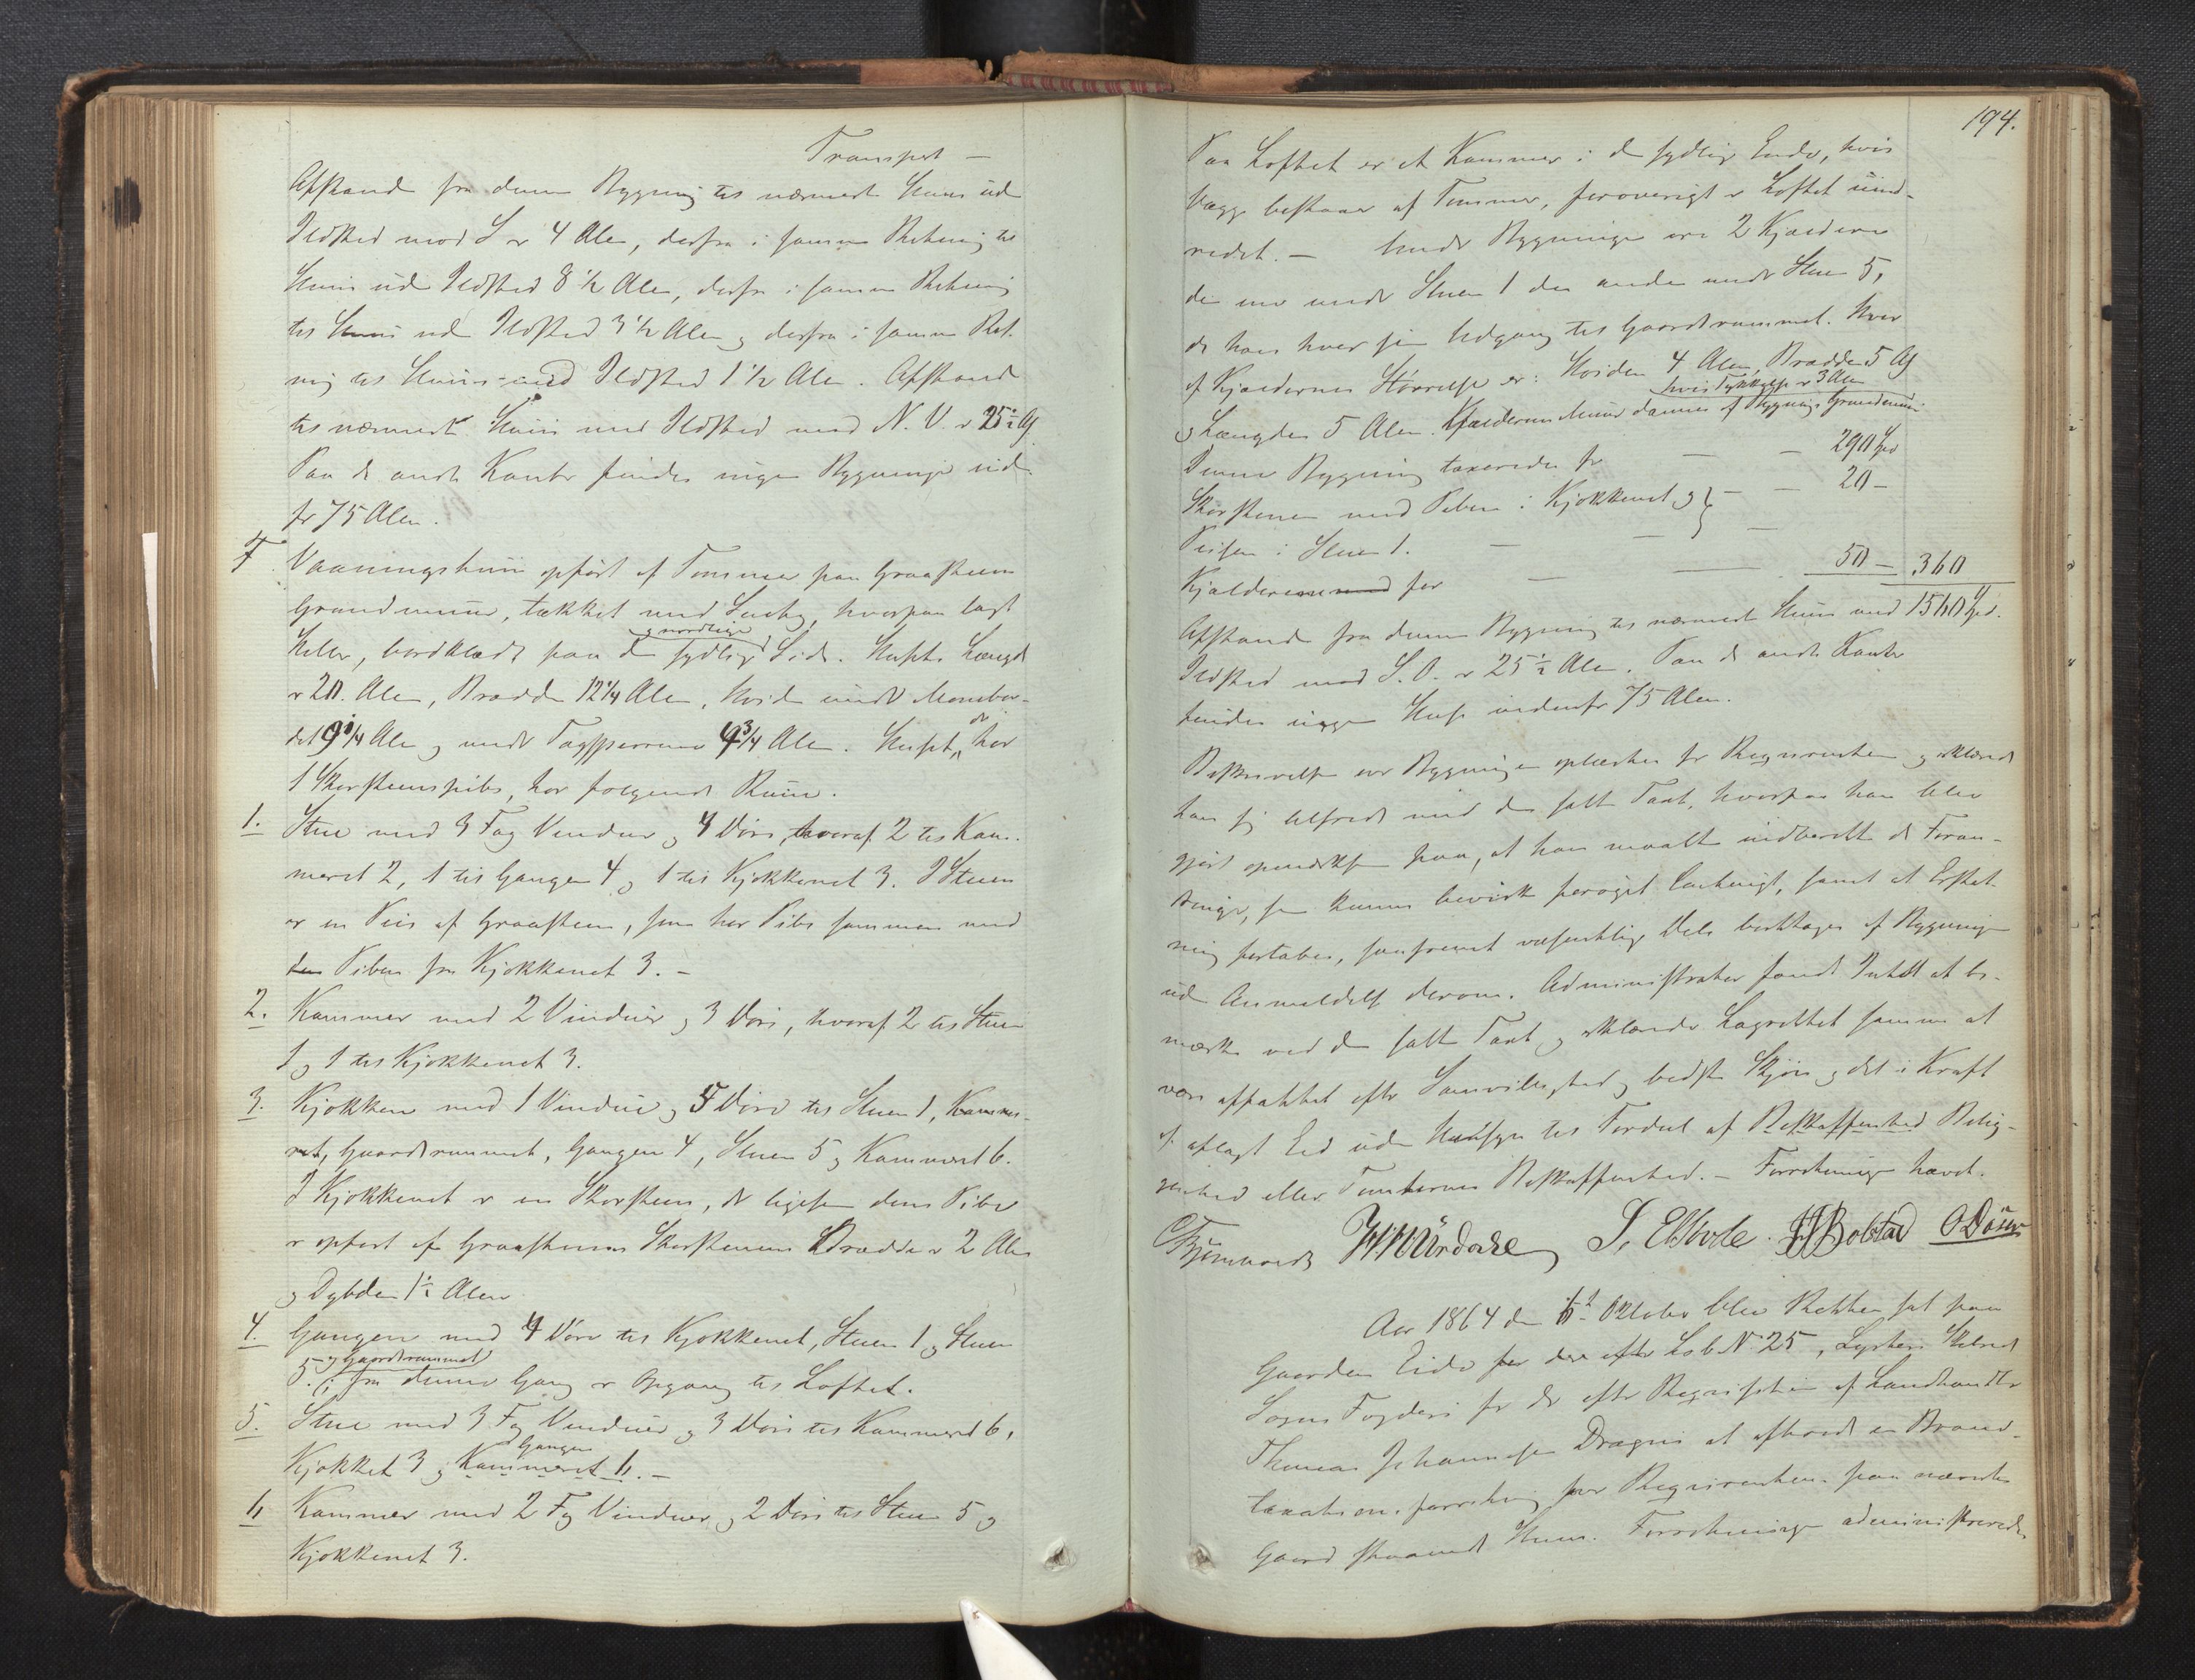 Transport –
Afstand fra denne Bygning til nærmeste Huus uden
Ildsted mod S er 4 Alen, derfra i samme Retning til
Huus uden Ildsted 8 1/2 Alen, derfra i samme Retning
til Huus uden Ildsted 3 1/2 Alen og derfra i samme Ret-
ning til Huus med Ildsted 1 1/2 Alen. Afstand
til nærmeste Huus med Ildsted mod N. V. er 25 1/2 Al
Paa de andre Kanter findes ingen Bygninger inden-
for 75 Alen.
F. Vaaningshuus opført af Tømmer paa Graasteens
Grundmuur, tækket med Næver, hvorpaa lagt
Heller, bordklædt paa den sydlige
og nordlige
Side. Husets Længde
er 20 Alen, Bredde 12 1/4 Alen, Høide under Mønebor-
det 9 1/4 Alen og under Tagsperrerne 4 3/4 Alen. Huset, der har
1 Skorsteenspibe, har følgende Rum.
1. Stue med 3 Fag Vinduer og 4 Døre, hvoraf 2 til Kam-
meret 2, 1 til Gangen 4 og 1 til Kjøkkenet 3. I Stuen
er en Peis af Graasteen, som har Pibe sammen med
den Piben fra Kjøkkenet 3. –
2. Kammer med 2 Vinduer og 3 Døre, hvoraf 2 til Stuen
1 og 1 til Kjøkkenet 3.
3. Kjøkken med 1 Vindue og 5 Døre til Stuen 1, Kamme-
ret, Gaardsrummet, Gangen 4, Stuen 5 og Kammeret 6.
I Kjøkkenet er en Skorsteen, der ligesom dens Pibe
er opført af Graasteen. Skorstenens Bredde er 2 Alen
og Dybden 1 1/2 Alen
4. Gangen med 4 Døre til Kjøkkenet, Stuen 1 og Stuen
5. og Gaardsrummet
fra denne Gang er Opgang til Loftet.
5. Stue med 3 Fag Vinduer og 3 Døre til Kammeret 6,
Kjøkket 3 og Kammeret 4. –
Gangen
6 Kammer med 2 Fag Vinduer og 2 Døre til Stuen 5 og
Kjøkkenet 3.
194.
Paa Loftet er et Kammer i den sydlige Ende, hvis
Vægge bestaaer af Tømmer, forøvrigt er Loftet uind-
redet. – Under Bygningen ere 2 Kjældere
den ene under Stuen 1 den anden under Stuen 5,
de have hver sin Udgang til Gaardsrummet. Hver
af Kjældernes Størrelse er: Høiden 4 Alen, Bredden 5 Al
hvis Tykkelse er 3 Alen
og Længden 5 Alen. Kjældernes Muur dannes af Bygnings Grundmuur
Denne Bygning taxeredes for – – 290 Spd
Skorstenen med Piben i Kjøkkenet og } – – 20 –
Peisen i Stuen 1. – –
Kjælderne for – – 50 – 360
1560 Spd.
Afstand fra denne Bygning til nærmeste Huus med
Ildsted mod S. O. er 25 1/2 Alen. Paa de andre Kanter
findes ingen Huse indenfor 75 Alen.
Beskrivelsen over Bygningen oplæstes for Reqvirenten og erklærede
han sig tilfreds med den satte Taxt, hvorpaa han blev
gjort opmærksom paa, at han maatte indberette de Foran-
dringer, som kunne bevirke forøget Contingent, samt at Erstat-
ning fortabes, saafremt væsentlige Dele borttages af Bygningen
uden Anmeldelse derom. Administrator fandt Intet at be-
mærke ved den satte Taxt og erklærede Lagrettet samme at
være affattet efter Samvittighed og bedste Skjøn og det i Kraft
af aflagt Eed uden Hensyn til Fordeel af Beskaffenhed Belig-
genhed eller Tomternes Beskaffenhed. – Forretningen hævet.
S. E. Hvile. Bolstad
Aar 1864 den 6te Oktober blev Retten sat paa
Gaarden Eide Løb N: 25, Lysters Skibred
Sogns Fogderi for der efter Reqvisition af Landhandler
Thomas Johannesen Drægni at afholde en Brand-
taxationsforretning over Reqvirentens paa nævnte
Gaard staaende Huse. Forretningen administreredes